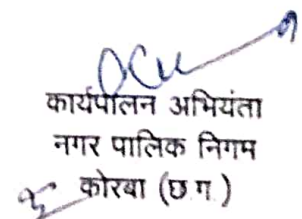 कार्यपालन अभियंता
नगर पालिक निगम
कोरबा (छ ग )